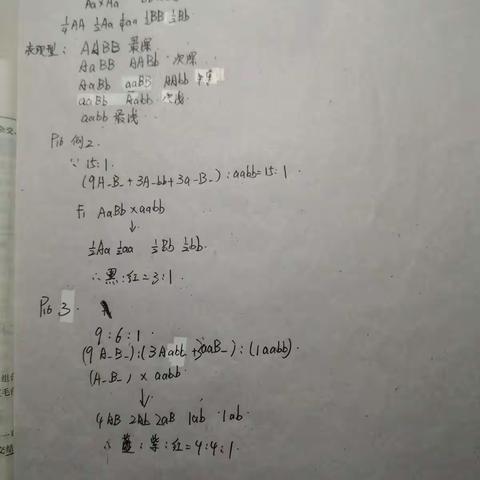 Aa×Aa
¼AA ½Aa ¼aa ½BB ½Bb
表现型： AABB 最深
AaBB AABb 次深
AaBb aaBB AAbb 中
aaBb Aabb 次浅
aabb 最浅
P16 例2.
∵ 15:1.
(9A_B_ + 3A_bb + 3a_B_) : aabb = 15:1.
F₁ AaBb × aabb
↓
½Aa ½aa ½Bb ½bb.
∴ 黑:红 = 3:1.
P16 3.
9:6:1.
(9A_B_):(3Aabb + 3aaB_):(1aabb).
(A_B_) × aabb
↓
4AB 2Ab 2aB 1ab 1ab.
∴ 蓝:紫:红 = 4:4:1.